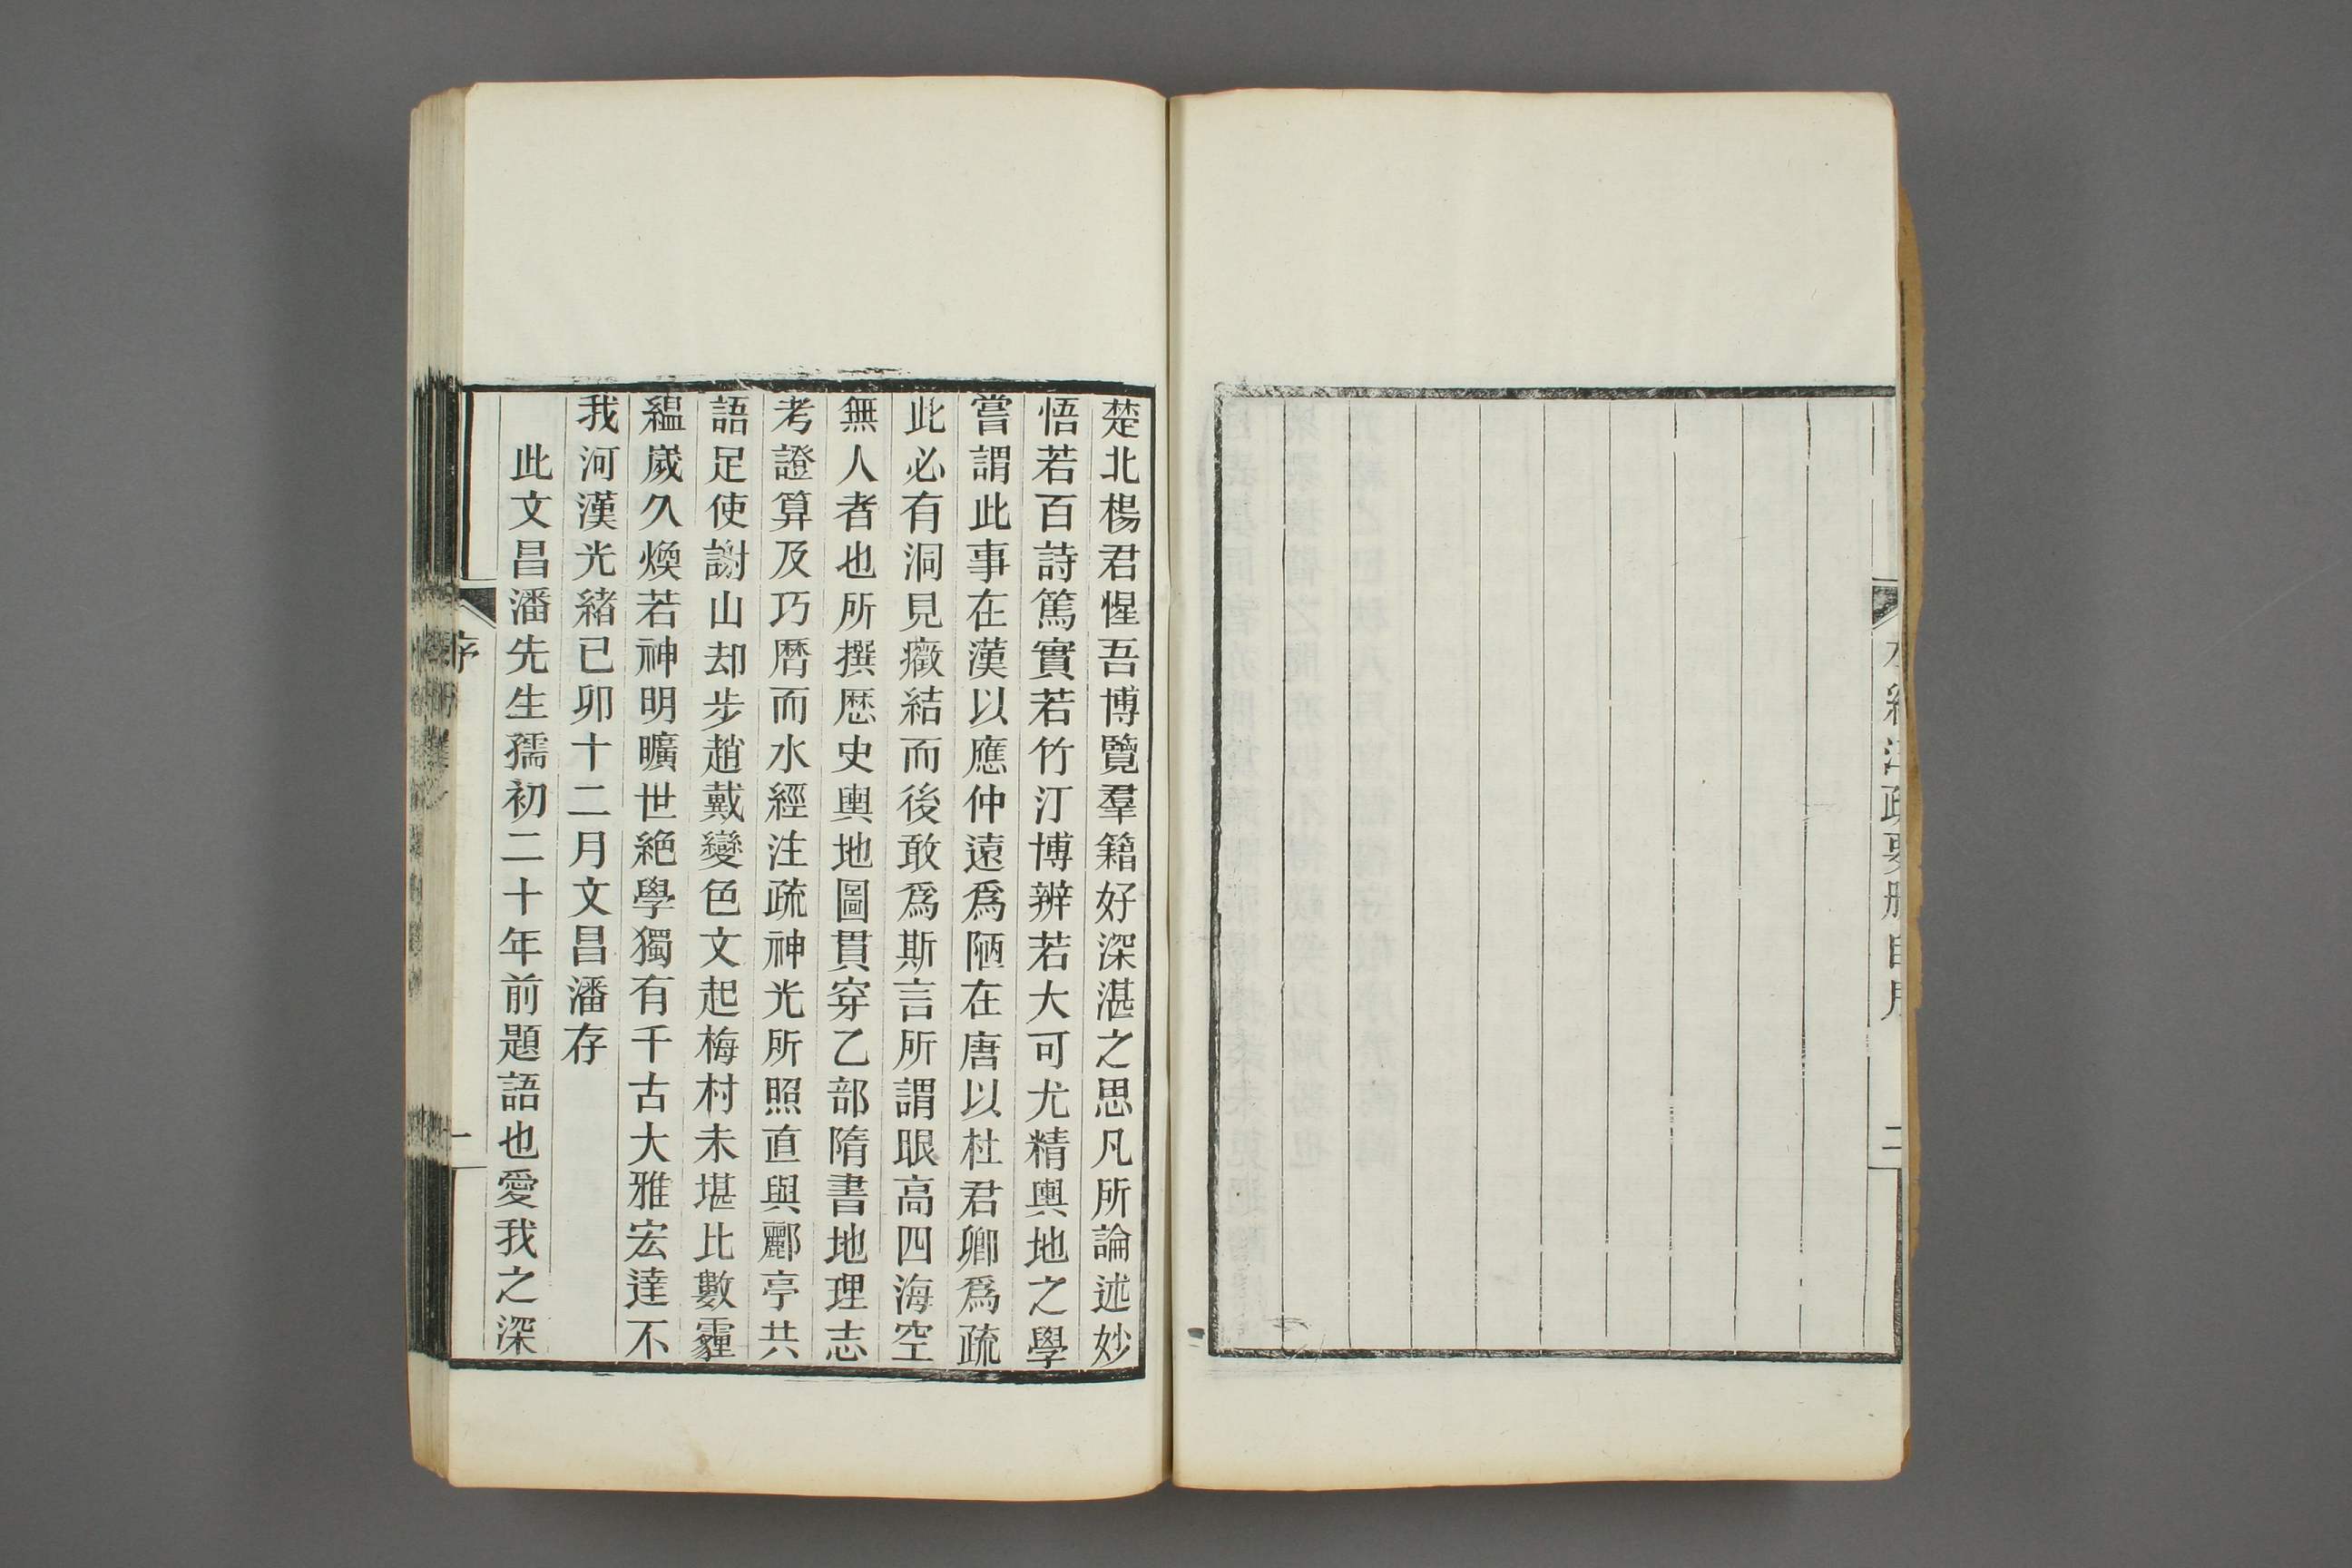 水經注疏要刪自序
二
楚北楊君惺吾博覽羣籍好深湛之思凡所論述妙
悟若百詩篤實若竹汀博辨若大可尤精輿地之學
嘗謂此事在漢以應仲遠爲陋在唐以杜君卿爲疏
此必有洞見癥結而後敢爲斯言所謂眼高四海空
無人者也所撰歷史輿地圖貫穿乙部隋書地理志
考證算及巧曆而水經注疏神光所照直與酈亭共
語足使謝山却步趙戴變色文起梅村未堪比數霾
縕歲久煥若神明曠世絶學獨有千古大雅宏達不
我河漢光緒已卯十二月文昌潘存
此文昌潘先生孺初二十年前題語也愛我之深
序
一